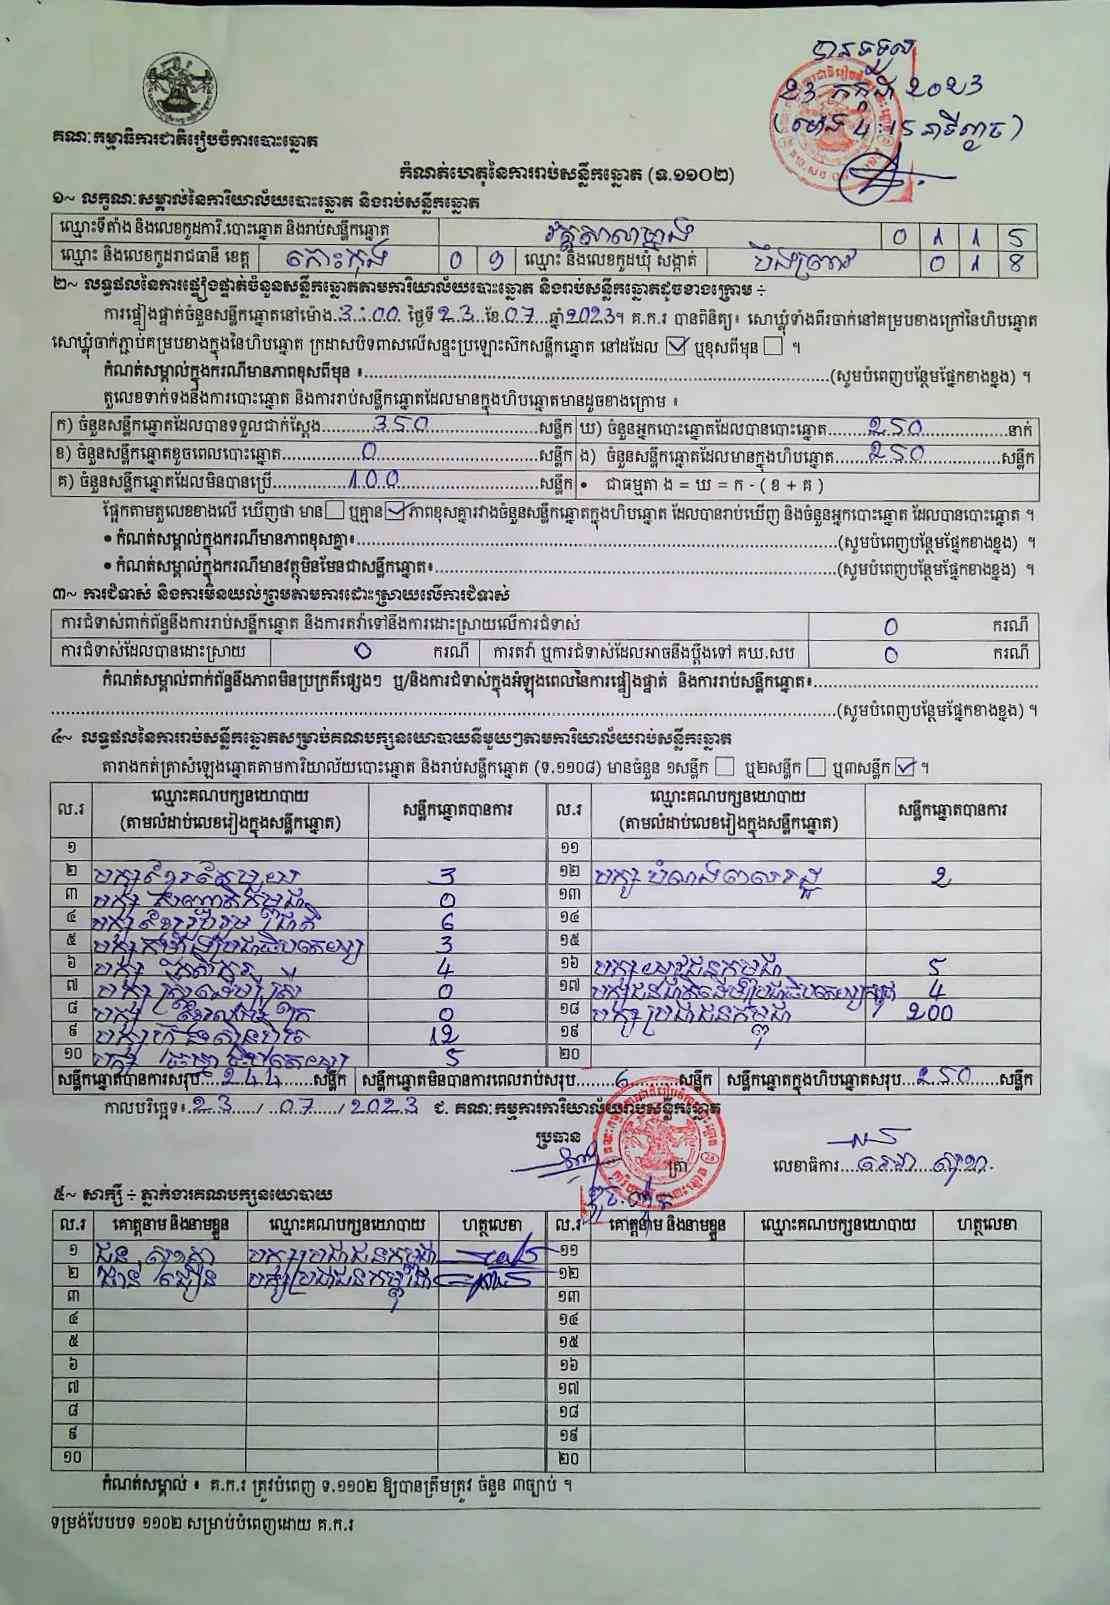 បានទទួល
23 កក្កដា 2023
(ម៉ោង 4:15 នាទីល្ងាច)
គណៈកម្មាធិការជាតិរៀបចំការបោះឆ្នោត
កំណត់ហេតុនៃការរាប់សន្លឹកឆ្នោត (ទ.១១០២)
១~ លក្ខណៈសម្គាល់នៃការិយាល័យបោះឆ្នោត និងរាប់សន្លឹកឆ្នោត
ឈ្មោះទីតាំង និងលេខកូដការិ.បោះឆ្នោត និងរាប់សន្លឹកឆ្នោត វត្តសាលាម្នាង 0 1 1 5
ឈ្មោះ និងលេខកូដរាជធានី ខេត្ត កោះកុង 0 9 ឈ្មោះ និងលេខកូដឃុំ សង្កាត់ បឹងព្រាវ 0 1 8
២~ លទ្ធផលនៃការផ្ទៀងផ្ទាត់ចំនួនសន្លឹកឆ្នោតតាមការិយាល័យបោះឆ្នោត និងរាប់សន្លឹកឆ្នោតដូចខាងក្រោម ÷
ការផ្ទៀងផ្ទាត់ចំនួនសន្លឹកឆ្នោតនៅម៉ោង.3:00 ថ្ងៃទី23 ខែ.07 ឆ្នាំ2023។ គ.ក.រ បានពិនិត្យ៖ សោឃ្លុំទាំងពីរចាក់នៅគម្របខាងក្រៅនៃហិបឆ្នោត
សោឃ្លុំចាក់ភ្ជាប់គម្របខាងក្នុងនៃហិបឆ្នោត ក្រដាសបិទពាសលើសន្ទះប្រឡោះស៊កសន្លឹកឆ្នោត នៅដដែល ☑ ឬខុសពីមុន ☐ ។
កំណត់សម្គាល់ក្នុងករណីមានភាពខុសពីមុន ៖ (សូមបំពេញបន្ថែមផ្នែកខាងខ្នង) ។
តួលេខទាក់ទងនឹងការបោះឆ្នោត និងការរាប់សន្លឹកឆ្នោតដែលមានក្នុងហិបឆ្នោតមានដូចខាងក្រោម ៖
ក) ចំនួនសន្លឹកឆ្នោតដែលបានទទួលជាក់ស្ដែង 350 សន្លឹក ឃ) ចំនួនអ្នកបោះឆ្នោតដែលបានបោះឆ្នោត 250 នាក់
ខ) ចំនួនសន្លឹកឆ្នោតខូចពេលបោះឆ្នោត 0 សន្លឹក ង) ចំនួនសន្លឹកឆ្នោតដែលមានក្នុងហិបឆ្នោត 250 សន្លឹក
គ) ចំនួនសន្លឹកឆ្នោតដែលមិនបានប្រើ 100 សន្លឹក • ជាធម្មតា ង = ឃ = ក - ( ខ + គ )
ផ្អែកតាមតួលេខខាងលើ ឃើញថា មាន ☐ ឬគ្មាន ☑ ភាពខុសគ្នារវាងចំនួនសន្លឹកឆ្នោតក្នុងហិបឆ្នោត ដែលបានរាប់ឃើញ និងចំនួនអ្នកបោះឆ្នោត ដែលបានបោះឆ្នោត ។
• កំណត់សម្គាល់ក្នុងករណីមានភាពខុសគ្នា៖ (សូមបំពេញបន្ថែមផ្នែកខាងខ្នង) ។
• កំណត់សម្គាល់ក្នុងករណីមានវត្ថុមិនមែនជាសន្លឹកឆ្នោត៖ (សូមបំពេញបន្ថែមផ្នែកខាងខ្នង) ។
៣~ ការជំទាស់ និងការមិនយល់ព្រមតាមការដោះស្រាយលើការជំទាស់
ការជំទាស់ពាក់ព័ន្ធនឹងការរាប់សន្លឹកឆ្នោត និងការតវ៉ាទៅនឹងការដោះស្រាយលើការជំទាស់ 0 ករណី
ការជំទាស់ដែលបានដោះស្រាយ 0 ករណី ការតវ៉ា ឬការជំទាស់ដែលអាចនឹងប្ដឹងទៅ គឃ.សប 0 ករណី
កំណត់សម្គាល់ពាក់ព័ន្ធនឹងភាពមិនប្រក្រតីផ្សេងៗ ឬ/និងការជំទាស់ក្នុងអំឡុងពេលនៃការផ្ទៀងផ្ទាត់ និងការរាប់សន្លឹកឆ្នោត៖
(សូមបំពេញបន្ថែមផ្នែកខាងខ្នង) ។
៤~ លទ្ធផលនៃការរាប់សន្លឹកឆ្នោតសម្រាប់គណបក្សនយោបាយនីមួយៗតាមការិយាល័យរាប់សន្លឹកឆ្នោត
តារាងកត់ត្រាសំឡេងឆ្នោតតាមការិយាល័យបោះឆ្នោត និងរាប់សន្លឹកឆ្នោត (ទ.១១០៨) មានចំនួន ១សន្លឹក ☐ ឬ២សន្លឹក ☐ ឬ៣សន្លឹក ☑ ។
ល.រ ឈ្មោះគណបក្សនយោបាយ សន្លឹកឆ្នោតបានការ ល.រ ឈ្មោះគណបក្សនយោបាយ សន្លឹកឆ្នោតបានការ
(តាមលំដាប់លេខរៀងក្នុងសន្លឹកឆ្នោត) (តាមលំដាប់លេខរៀងក្នុងសន្លឹកឆ្នោត)
១ ១១
២ បក្សខ្មែរតែមួយ 3 ១២ បក្សបំណងពលរដ្ឋ 2
៣ បក្សសញ្ជាតិកម្ពុជា 0 ១៣
៤ បក្សខ្មែររួបរួមជាតិ 6 ១៤
៥ បក្សកម្លាំងប្រជាធិបតេយ្យ 3 ១៥
៦ បក្សកសិករ 4 ១៦ បក្សយុវជនកម្ពុជា 5
៧ បក្សស្ត្រីដើម្បីស្ត្រី 0 ១៧ បក្សជនជាតិដើមប្រជាធិបតេយ្យកម្ពុជា 4
៨ បក្ស 0 ១៨ បក្សប្រជាជនកម្ពុជា 200
៩ បក្សហ្វ៊ុនស៊ិនប៉ិច 12 ១៩
១០ បក្សធម្មាធិបតេយ្យ 5 ២០
សន្លឹកឆ្នោតបានការសរុប 244 សន្លឹក សន្លឹកឆ្នោតមិនបានការពេលរាប់សរុប 6 សន្លឹក សន្លឹកឆ្នោតក្នុងហិបឆ្នោតសរុប 250 សន្លឹក
កាលបរិច្ឆេទ៖ 23 / 07 / 2023 ជ. គណៈកម្មការការិយាល័យរាប់សន្លឹកឆ្នោត
ប្រធាន
ត្រា លេខាធិការ
៥~ សាក្សី ÷ ភ្នាក់ងារគណបក្សនយោបាយ
ល.រ គោត្តនាម និងនាមខ្លួន ឈ្មោះគណបក្សនយោបាយ ហត្ថលេខា ល.រ គោត្តនាម និងនាមខ្លួន ឈ្មោះគណបក្សនយោបាយ ហត្ថលេខា
១ បក្សប្រជាជនកម្ពុជា ១១
២ បក្សប្រជាជនកម្ពុជា ១២
៣ ១៣
៤ ១៤
៥ ១៥
៦ ១៦
៧ ១៧
៨ ១៨
៩ ១៩
១០ ២០
កំណត់សម្គាល់ ៖ គ.ក.រ ត្រូវបំពេញ ទ.១១០២ ឱ្យបានត្រឹមត្រូវ ចំនួន ៣ច្បាប់ ។
ទម្រង់បែបបទ ១១០២ សម្រាប់បំពេញដោយ គ.ក.រ